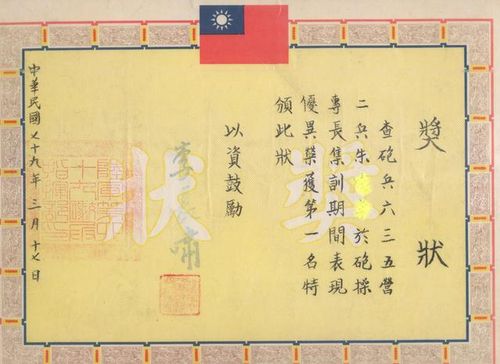 獎狀
查砲兵六三五營
二兵朱於砲操
專長集訓期間表現
優異榮獲第一名特
頒此狀
以資鼓勵
中華民國七十九年三月十七日
獎狀